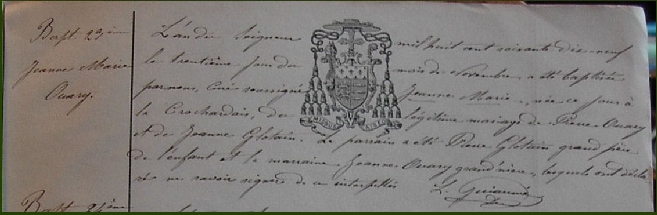 Bapt 23ème
Jeanne Marie
Ouary.
L'an du Seigneur mil huit cent soixante dix neuf
le trentième jour du mois de Novembre, a été baptisée
par nous, Curé soussigné Jeanne Marie née ce jour à
la Crochardais, du légitime mariage de Pierre Ouary
et de Jeanne Glotain. Le parrain a été Pierre Glotain grand père
de l'enfant et la marraine Jeanne Ouary grand'mère, lesquels ont décla
ré ne savoir signer de ce interpellés
Bapt 24ème